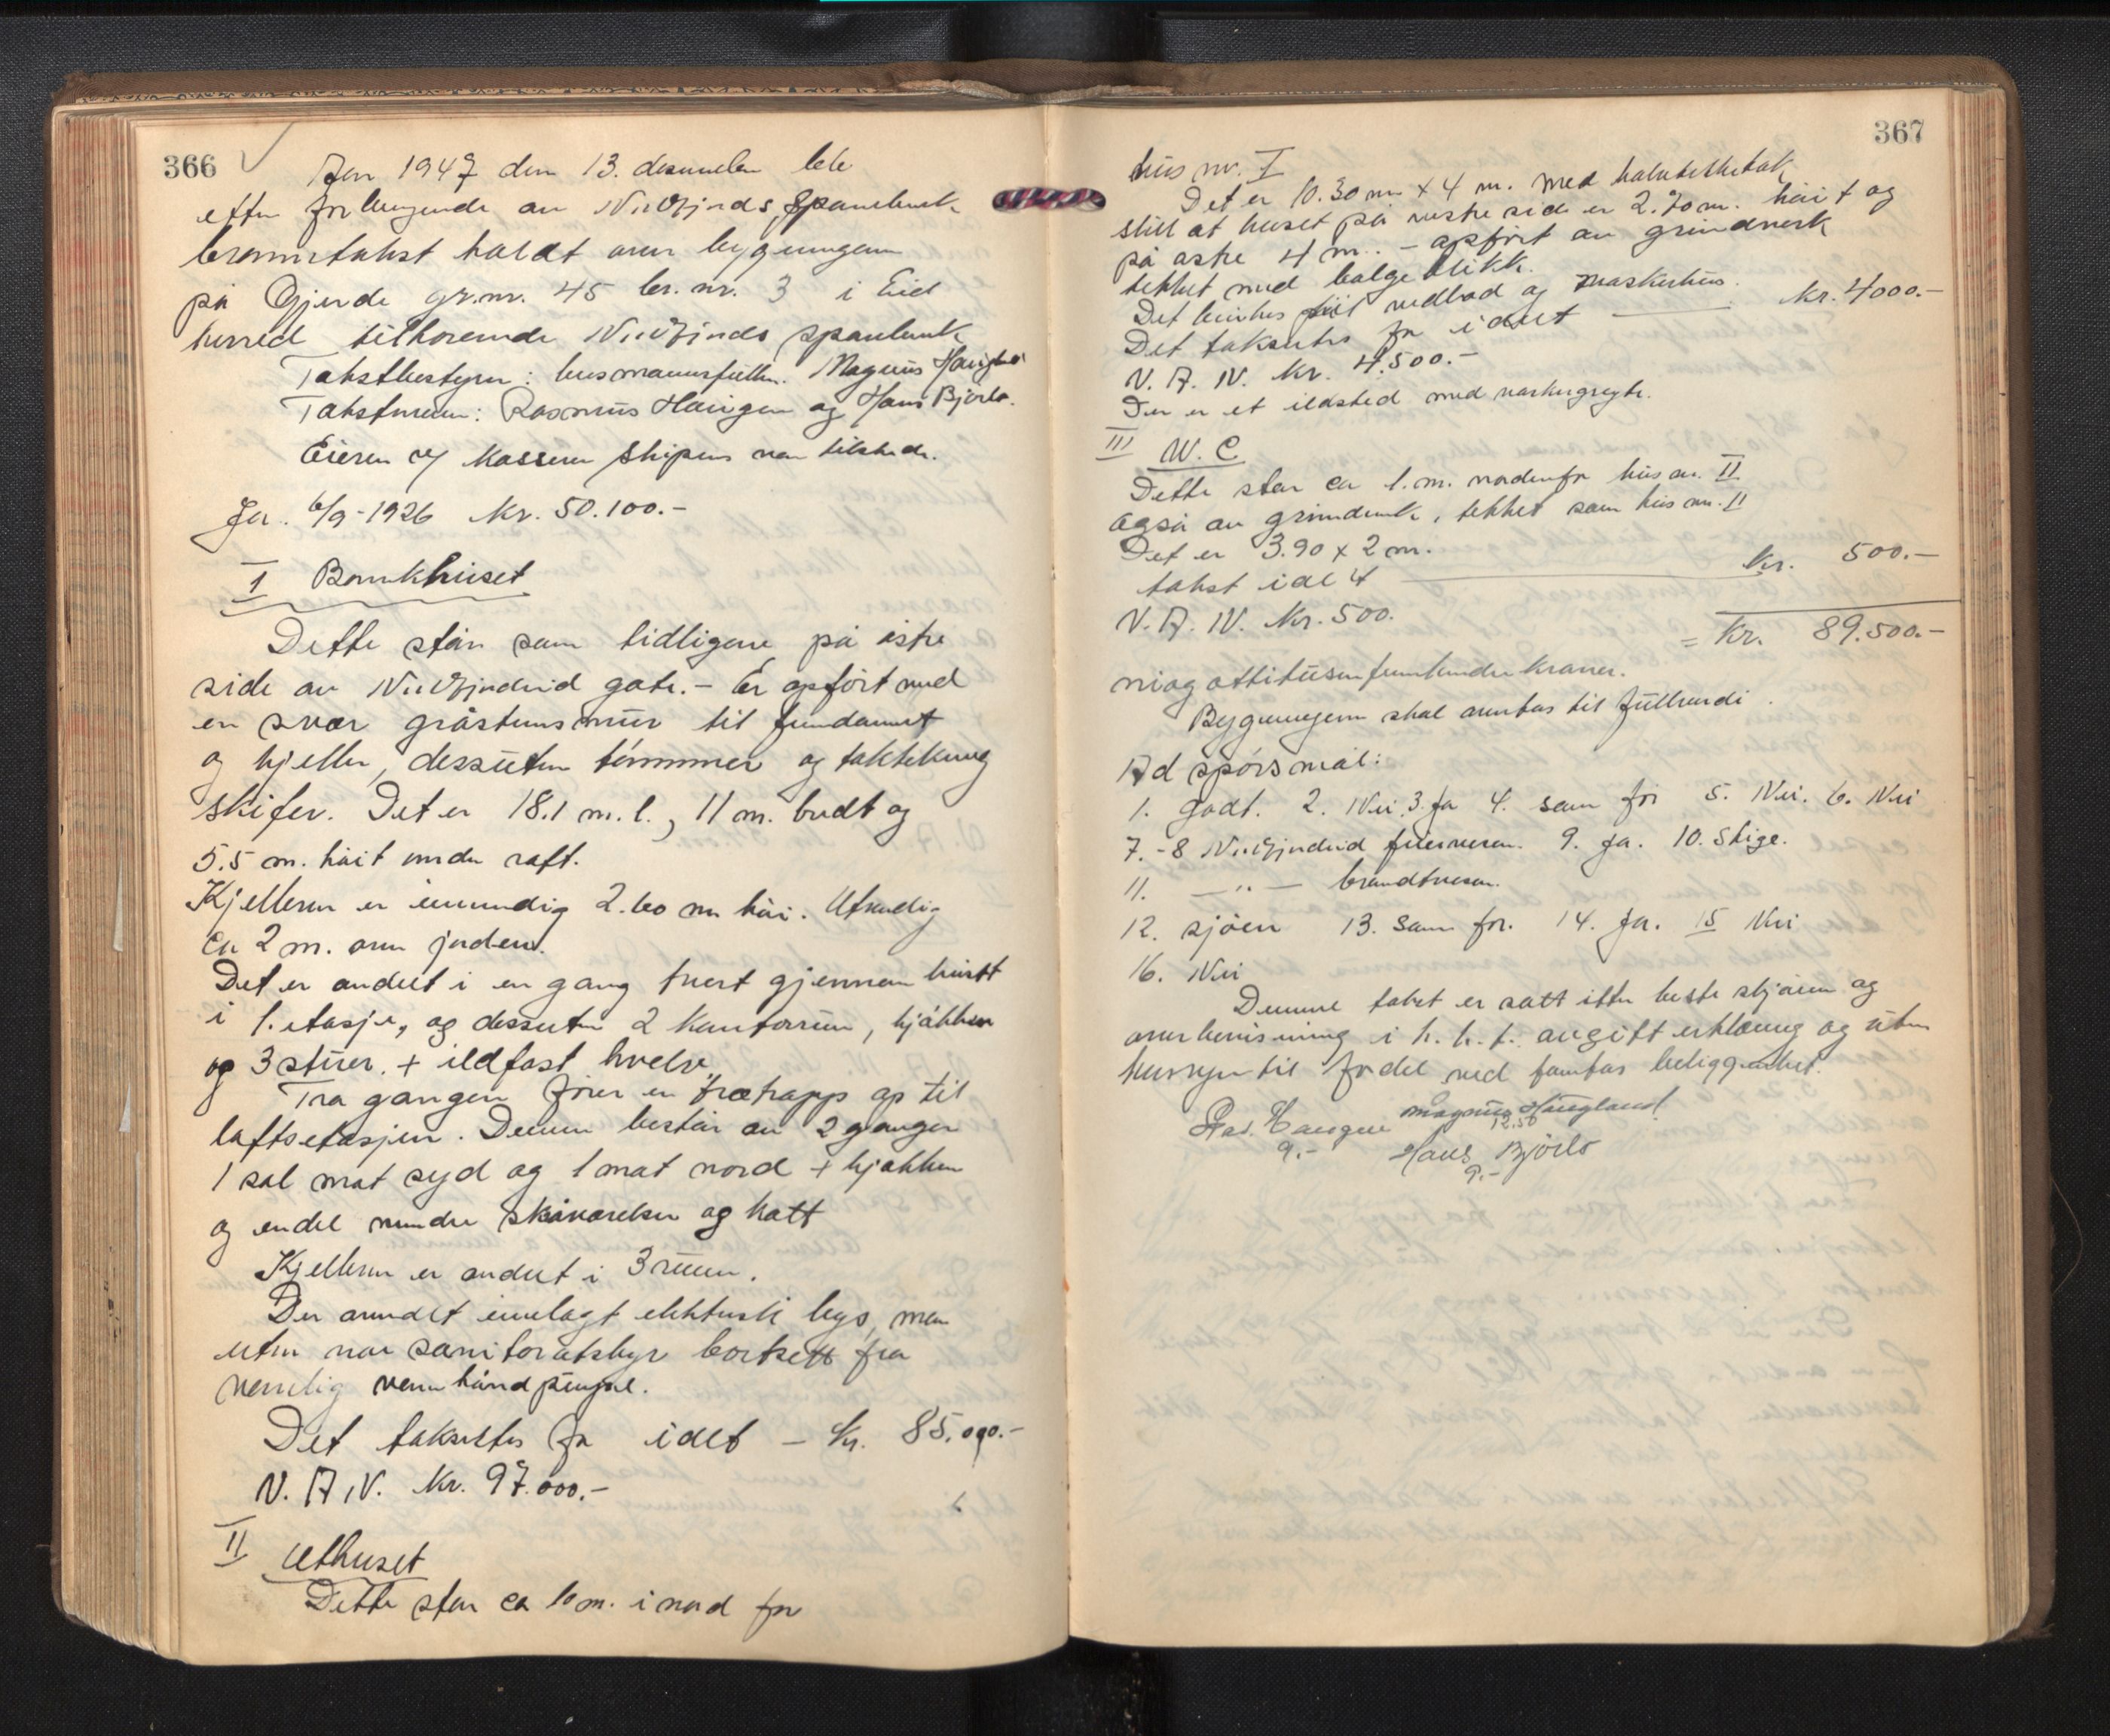 366
Aar 1947 den 13. desember ble
etter forlangende av Nordfjords Sparebank
branntakst holdt over bygningene
på Gjerde gr.nr. 45 br.nr. 3 i Eid
herred tilhørende Nordfjords sparebank
Takstbestyrer: lensmannsfullm. Magnus Haugland
Takstmenn: Rasmus Haugen og Hans Bjørlo.
Eieren v/ kasserer Skipenes var tilstede.
Ja. 6/9-1926 Kr. 50.100.-
I Bankhuset
Dette står som tidligere på østre
side av Nordfjordeid gate. - Er opført med
en svær gråstensmur til fundament
og kjeller, dessuten tømmer og taktekking
skifer. Det er 18.1 m. l., 11 m. bredt og
5.5 m. høit under raft.
Kjelleren er innvendig 2.60 m høi. Utvendig
ca 2 m. over jorden.
Det er avdelt i en gang tvert gjennem huset
i 1. etasje, og dessuten 2 kontorrum, kjøkken
og 3 stuer. + ildfast hvelv.
Fra gangen fører en trætrapp op til
loftsetasjen. Denne består av 2 ganger
1 sal mot syd og 1 mot nord + kjøkken
og endel mindre skåværelser og kott
Kjelleren er avdelt i 3 rum.
Der er innlagt elektrisk lys, men
uten noe sanitorutstyr bortsett fra
vannlig vann håndpumpe.
Det takseres for idet - kr. 85.000.-
V. A. N. Kr. 97.000.-
II Uthuset
Dette står ca 10 m. i nord for
367
hus nr. I
Det er 10.30 m x 4 m. med halvtekketak
slik at huset på vestre side er 2.70 m. høit og
på østre 4 m. - opført av grindverk
tekket med bølgeblikk.
Det benyttes til vedbod og vaskerhus.
Det takseres for idet Kr. 4000.-
V. A. N. Kr. 4.500.-
Der er et ildsted med
III W. C
Dette står ca 1. m. nordenfor hus nr. II
også av grindverk, tekket som hus nr. II
Det er 3.90 x 2 m.
takst idet Kr. 500.-
V. A. N. Kr. 500.
= Kr. 89.500.-
niogottitusenfemhundre kroner.
Bygningene skal ansettes til fullverdi.
Ad spørsmål:
1. Godt. 2. Nei. 3. Ja 4. som før 5. Nei. 6. Nei
7. - 8 Nordfjordeid 9. Ja. 10. Stige.
11. - " - brandtvesen.
12. sjøen 13. Som før. 14. Ja. 15 Nei
16. Nei
Denne takst er satt etter beste skjønn og
overbevisning i h. h. t. avgitt erklæring og uten
hensyn til fordel ved tomtas beliggenhet.
Ras. Haugen Magnus Haugland
9.- 12.50
Hans Bjørlo
9.-